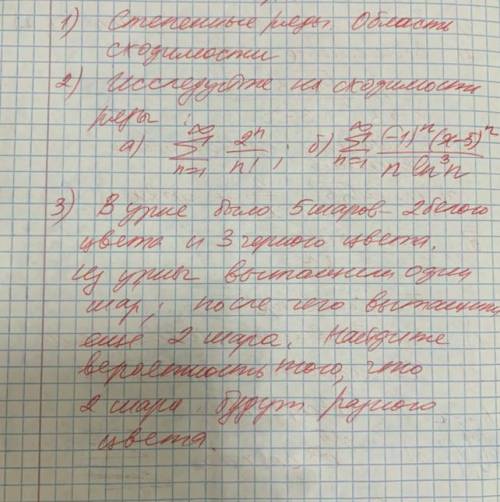 1) Степенные ряды. Область
сходимости
2) Исследуйте на сходимость
ряды:
а) ∞ ∑ n=1 2ⁿ/n! ; б) ∞ ∑ n=1 (-1)ⁿ(x-5)ⁿ/n ln³n
3) В урне было 5 шаров - 2 белого
цвета и 3 черного цвета.
Из урны вытащили один
шар, после чего вытащили
ещё 2 шара. Найдите
вероятность того, что
2 шара будут разного
цвета.